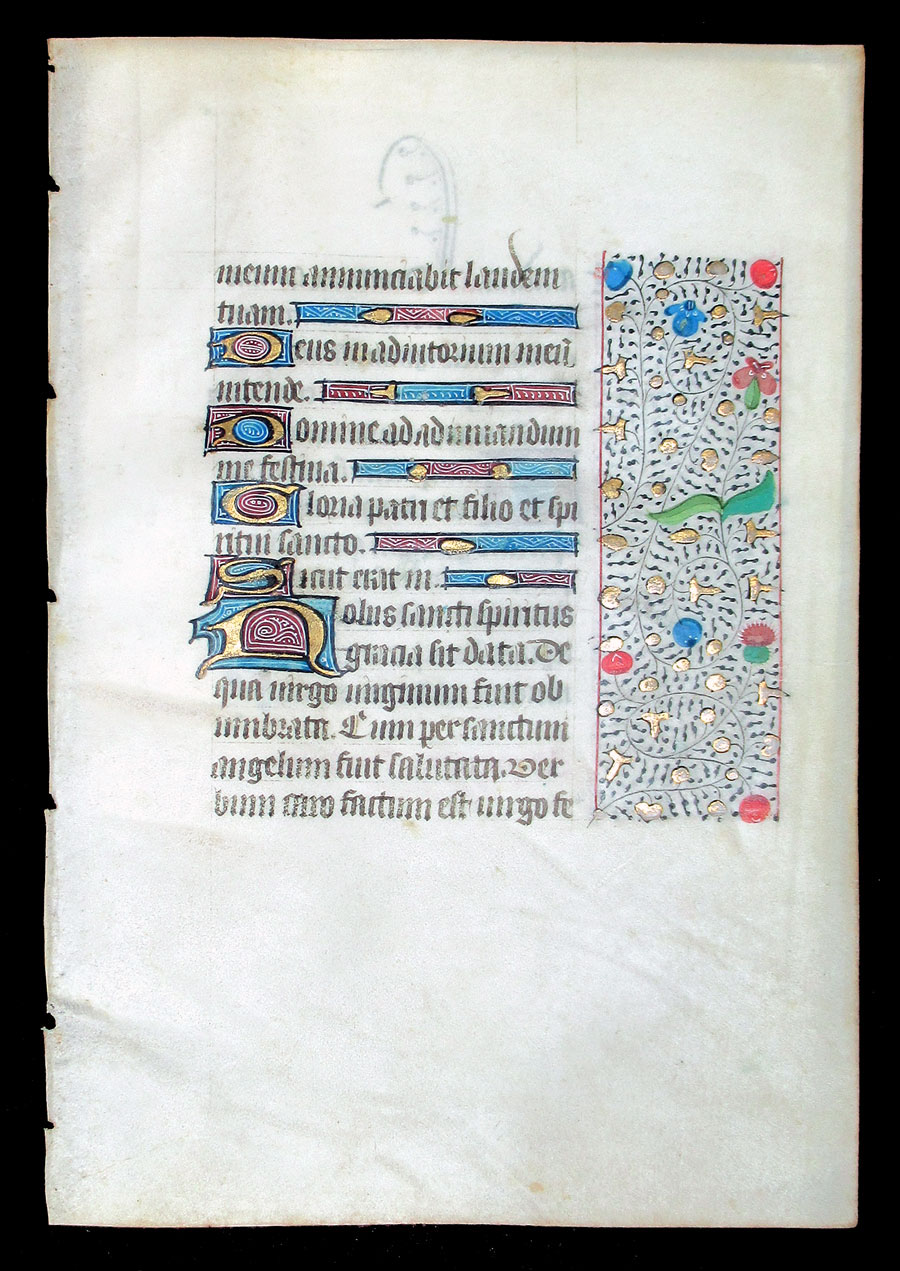 meum annunciabit laudem
tuam.
Deus in adiutorium meū
intende.
Domine ad adiuuandum
me festina.
Gloria patri et filio et spi
ritui sancto.
Sicut erat in
Nobis sancti spiritus
gracia sit data. De
qua uirgo uirginum fuit ob
umbrata. Cum per sanctum
angelum fuit salutata. Ver
bum caro factum est uirgo fe